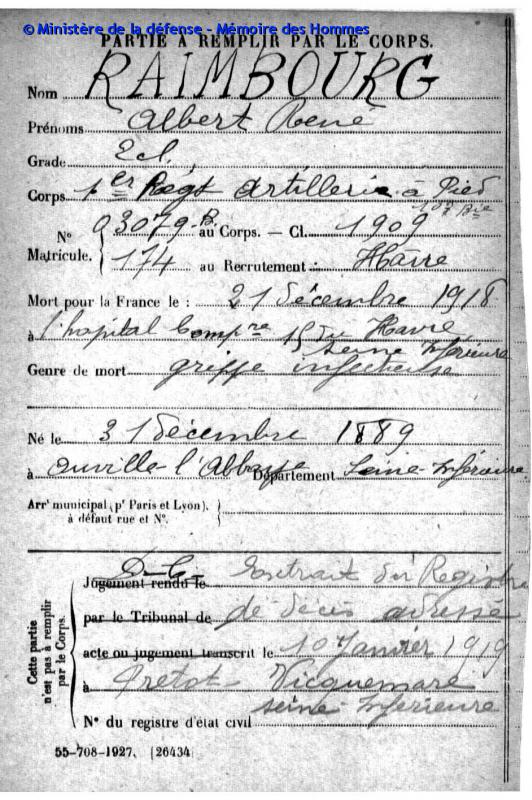 © Ministère de la défense - Mémoire des Hommes
PARTIE À REMPLIR PAR LE CORPS.
Nom RAIMBOURG
Prénoms Albert René
Grade
Corps 1er Régt Artillerie à Pied
107 Bie
N° 03079-B au Corps. — Cl. 1909
Matricule. 174 au Recrutement : Hâvre
Mort pour la France le : 21 décembre 1918
à l'hopital Compre 15 du Havre
Seine Inférieure
Genre de mort grippe infectieuse
Né le 31 décembre 1889
à Auville-l'Abbaye Département Seine-Inférieure
Arrt municipal (pr Paris et Lyon),
à défaut rue et N°.
Cette partie
n'est pas à remplir
par le Corps.
Jugement rendu le Extrait du Registre
par le Tribunal de de décès adressé
acte ou jugement transcrit le 10 Janvier 1919
à Pretot-Vicquemare
Seine Inférieure
N° du registre d'état civil
55-708-1927. [26434]